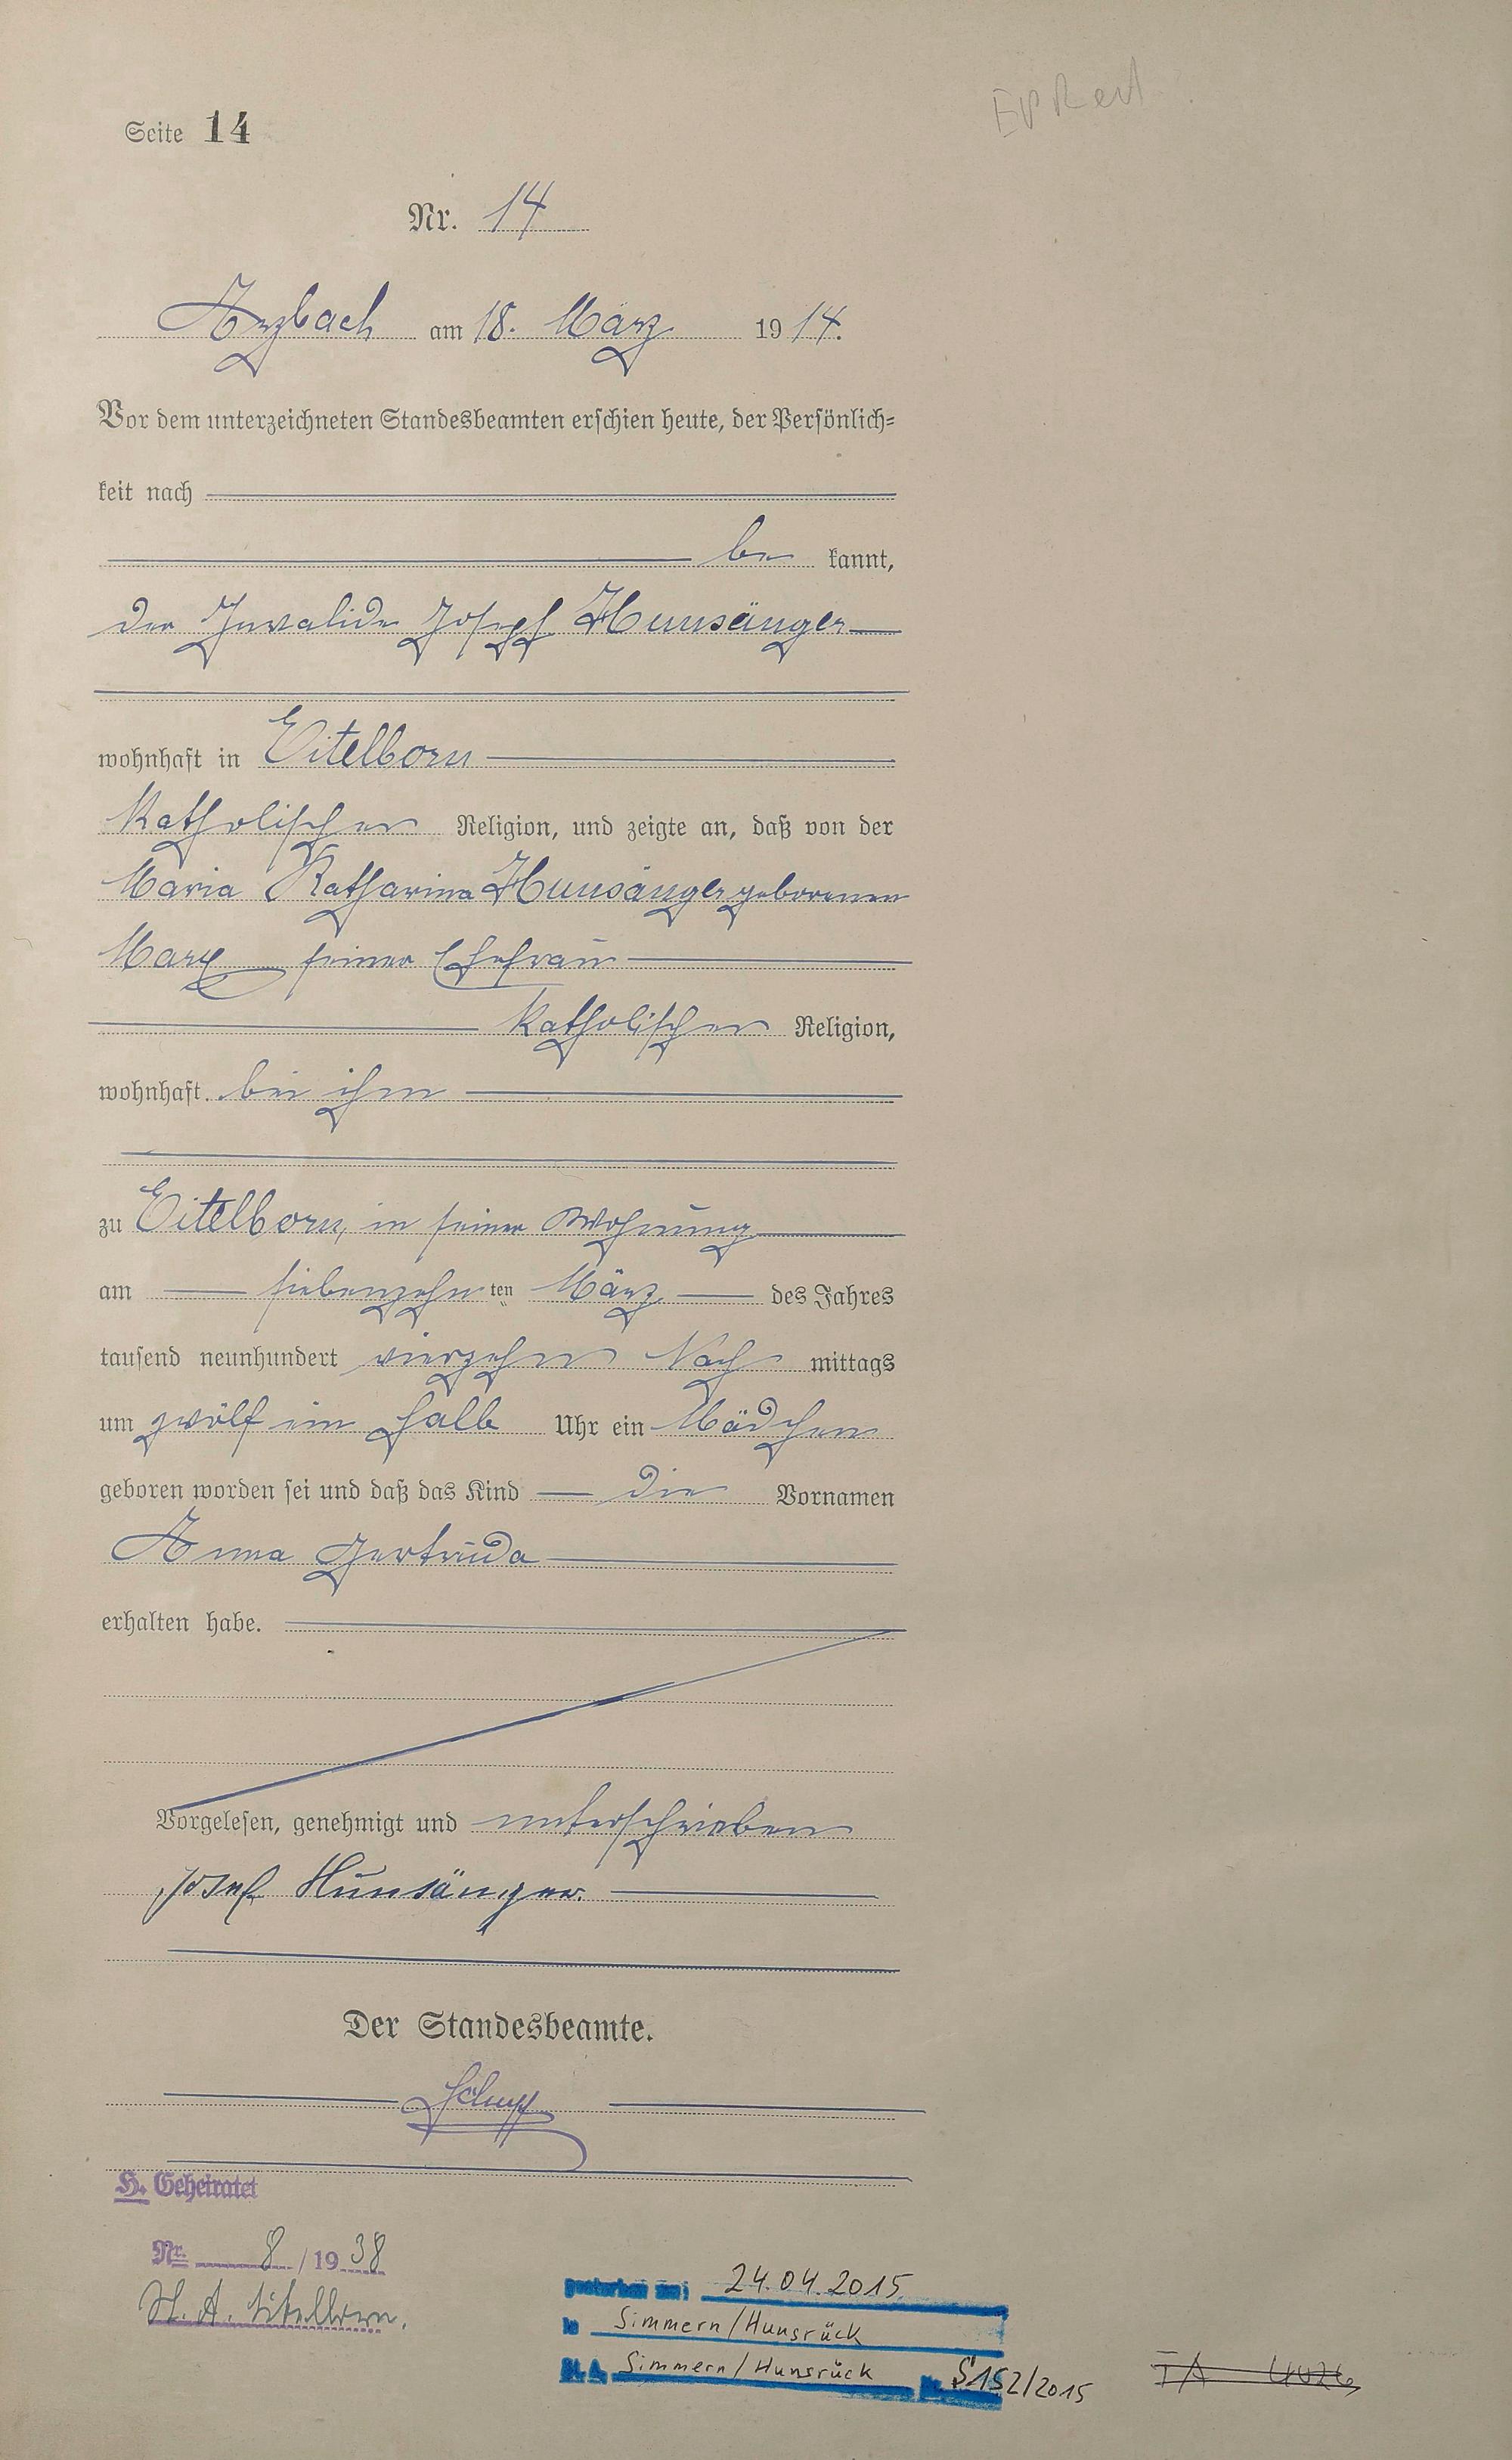 Seite 14
Nr. 14
Arzbach am 18. März 1914.
Vor dem unterzeichneten Standesbeamten erschien heute, der Persönlich=
keit nach
be kannt,
der Invalide Joseph Hunsänger
wohnhaft in Eitelborn
katholischer Religion, und zeigte an, daß von der
Maria Katharina Hunsänger geborenen
Marx seiner Ehefrau
katholischer Religion,
wohnhaft bei ihm
zu Eitelborn, in seiner Wohnung
am siebenzehnten März des Jahres
tausend neunhundert vierzehn Nach mittags
um zwölf ein halb Uhr ein Mädchen
geboren worden sei und daß das Kind die Vornamen
Anna Gertruda
erhalten habe.
Vorgelesen, genehmigt und unterschrieben
Josef Hunsänger.
Der Standesbeamte.
H. Geheiratet
Nr. 8/1938
St. A. Eitelborn.
gestorben am: 24.04.2015
in Simmern/Hunsrück
St. A. Simmern/Hunsrück Nr. S152/2015